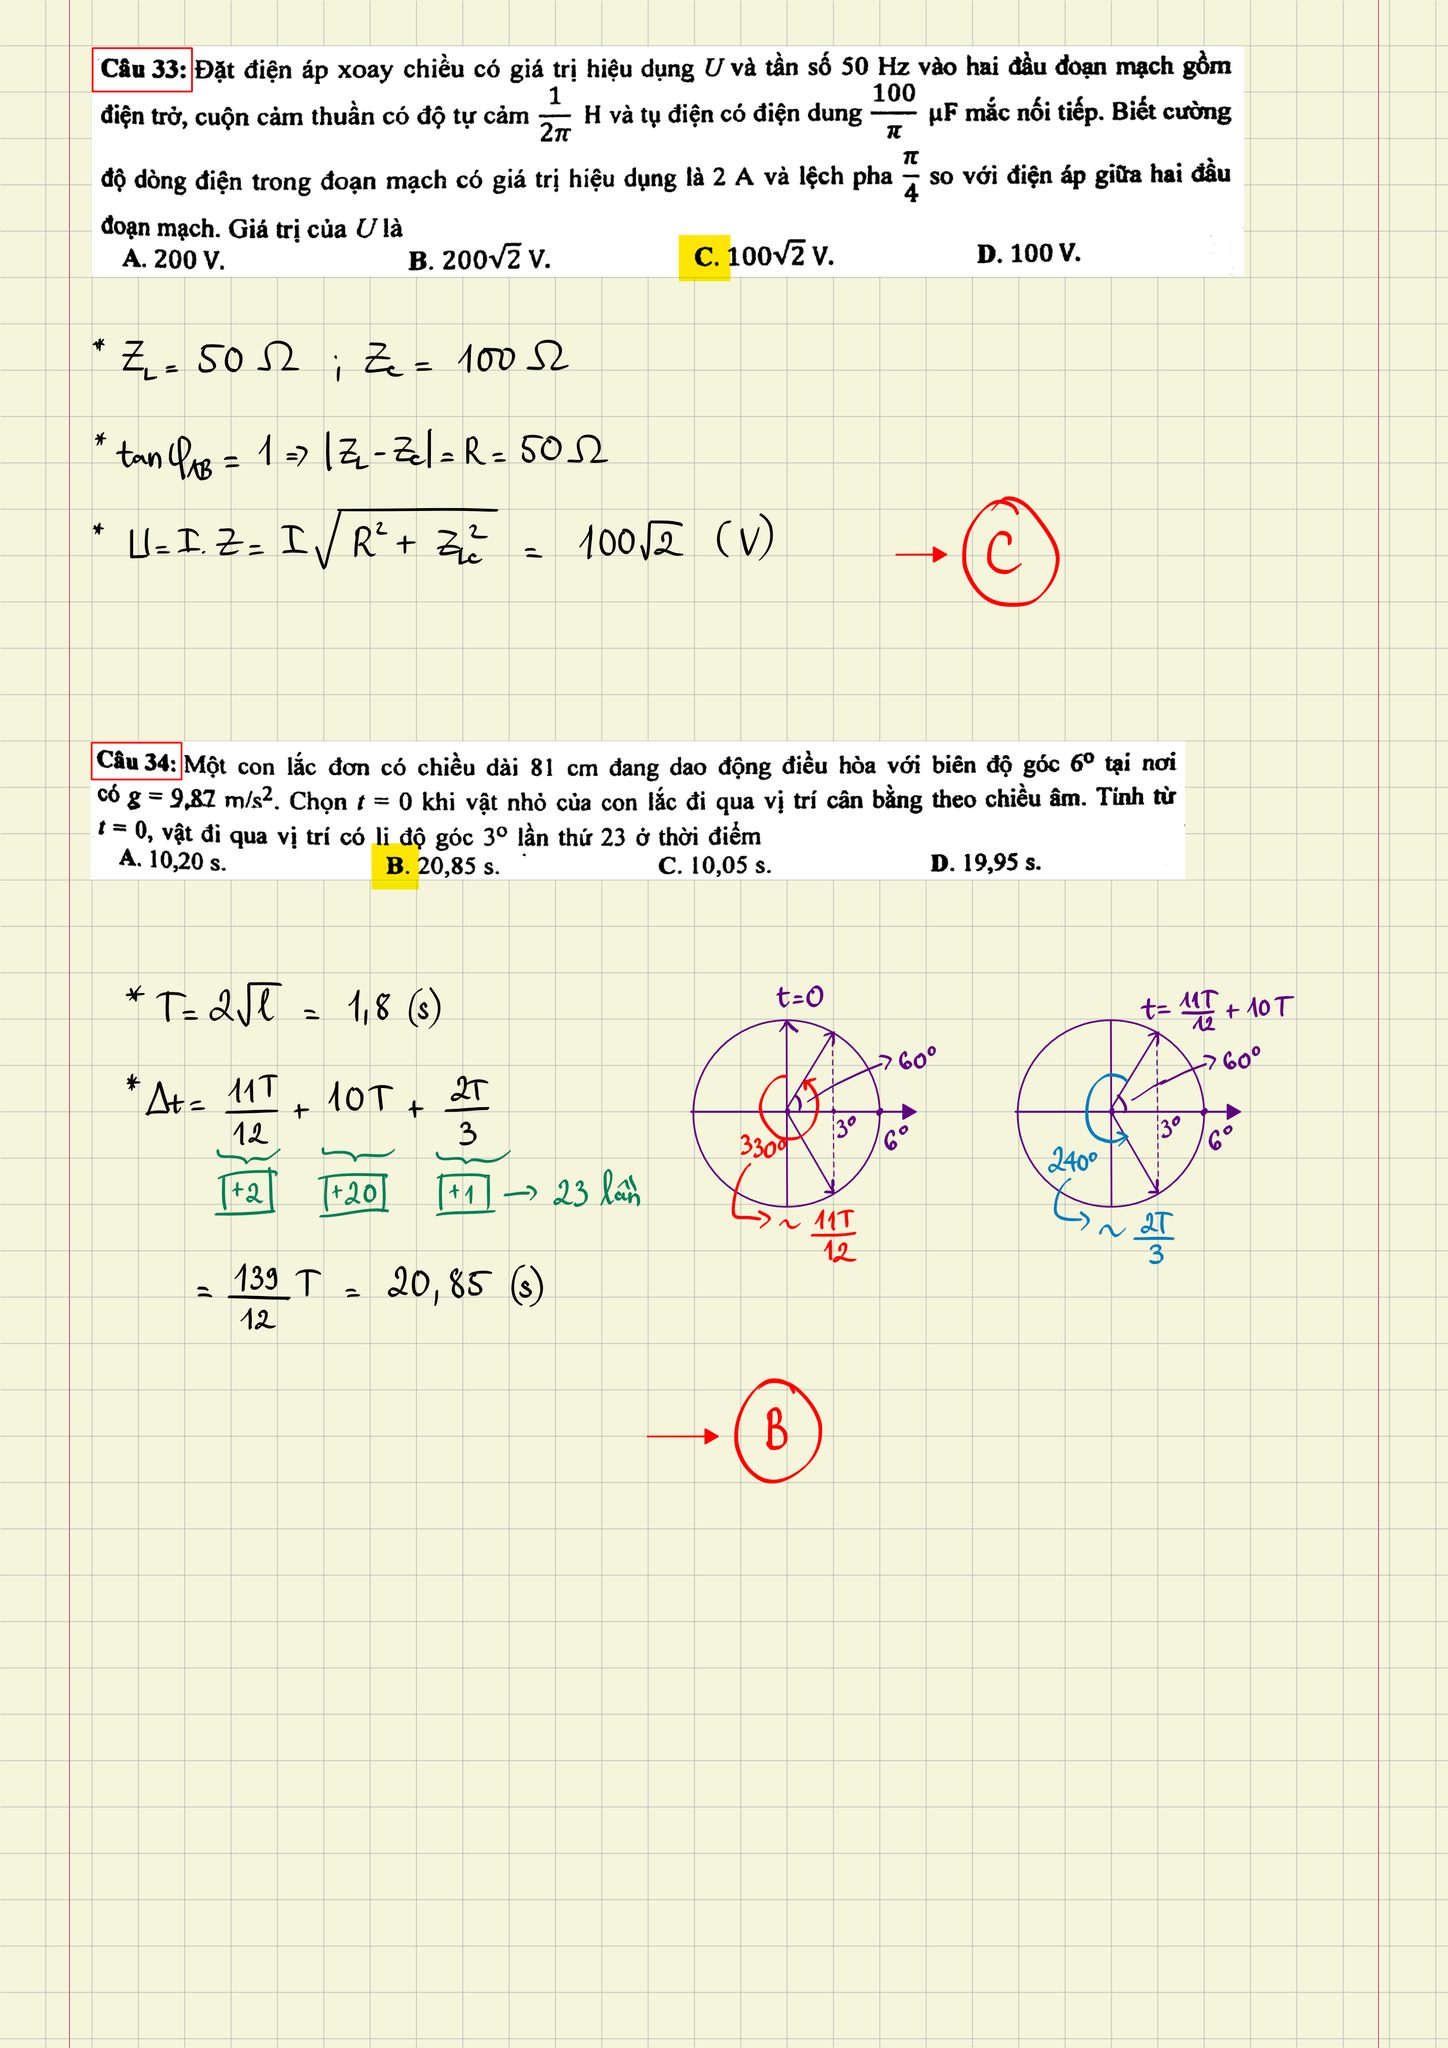 Câu 33: Đặt điện áp xoay chiều có giá trị hiệu dụng U và tần số 50 Hz vào hai đầu đoạn mạch gồm
điện trở, cuộn cảm thuần có độ tự cảm 1/2π H và tụ điện có điện dung 100/π μF mắc nối tiếp. Biết cường
độ dòng điện trong đoạn mạch có giá trị hiệu dụng là 2 A và lệch pha π/4 so với điện áp giữa hai đầu
đoạn mạch. Giá trị của U là
A. 200 V. B. 200√2 V. C. 100√2 V. D. 100 V.
* Z_L = 50 Ω ; Z_C = 100 Ω
* tan φ_AB = 1 => |Z_L - Z_C| = R = 50 Ω
* U = I.Z = I√(R² + Z_LC²) = 100√2 (V)
→ C
Câu 34: Một con lắc đơn có chiều dài 81 cm đang dao động điều hòa với biên độ góc 6⁰ tại nơi
có g = 9,87 m/s². Chọn t = 0 khi vật nhỏ của con lắc đi qua vị trí cân bằng theo chiều âm. Tính từ
t = 0, vật đi qua vị trí có li độ góc 3⁰ lần thứ 23 ở thời điểm
A. 10,20 s. B. 20,85 s. C. 10,05 s. D. 19,95 s.
* T = 2√l = 1,8 (s)
* Δt = 11T/12 + 10T + 2T/3
+2 +20 +1 → 23 lần
= 139/12 T = 20,85 (s)
t=0
60⁰
3⁰
6⁰
330⁰
~ 11T/12
t = 11T/12 + 10T
60⁰
3⁰
6⁰
240⁰
~ 2T/3
→ B